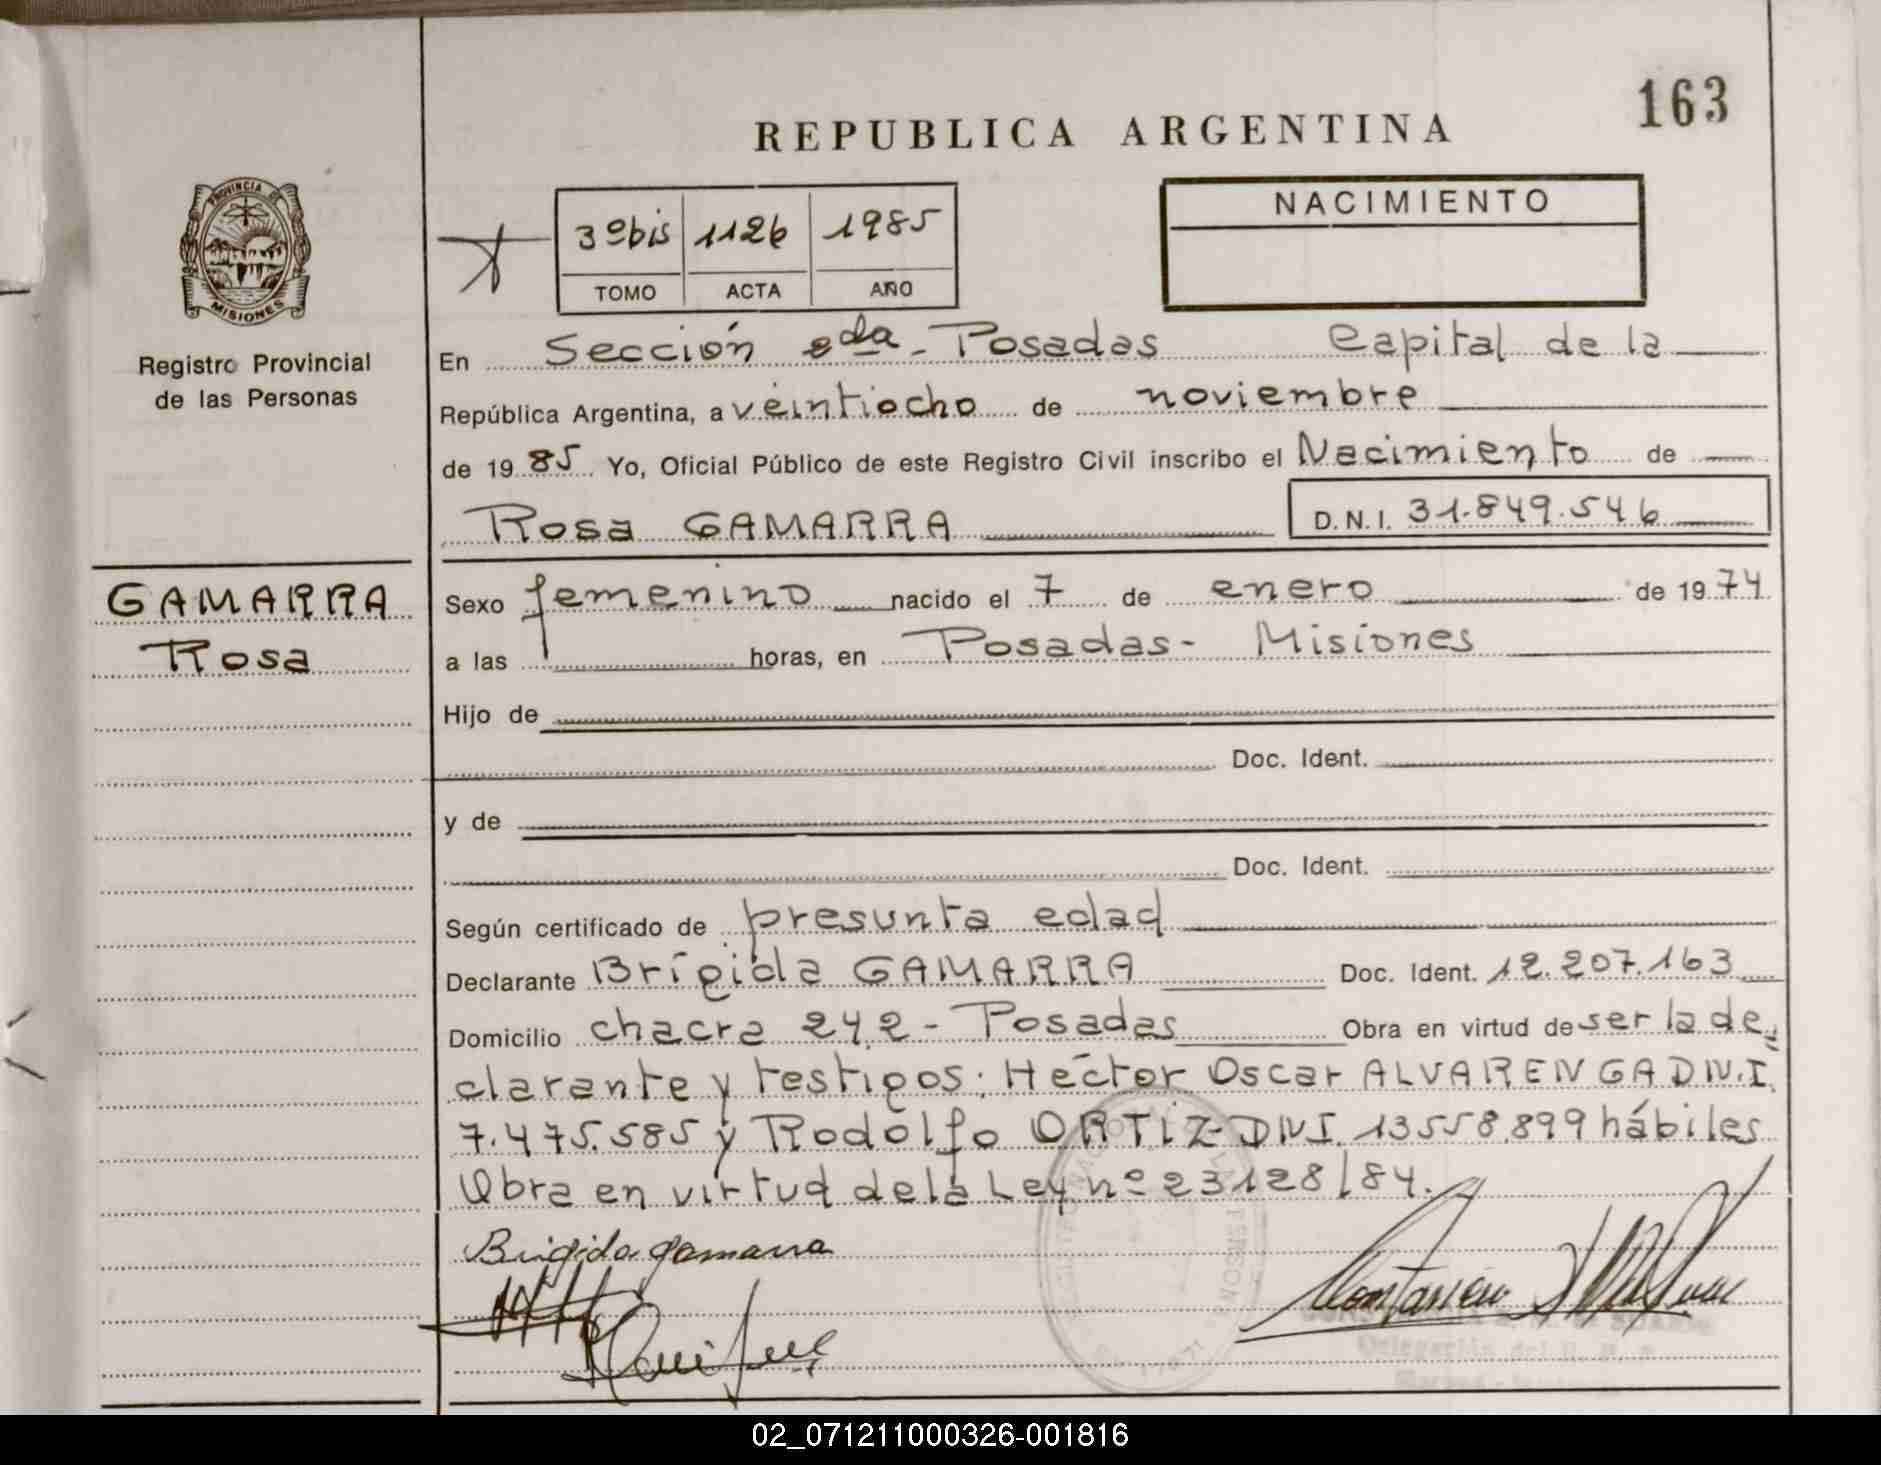 163
REPUBLICA ARGENTINA
PROVINCIA DE
MISIONES
Registro Provincial
de las Personas
3º bis 1126 1985
TOMO ACTA AÑO
NACIMIENTO
En Sección 2da - Posadas Capital de la
República Argentina, a veintiocho de noviembre
de 1985 Yo, Oficial Público de este Registro Civil inscribo el Nacimiento de
Rosa GAMARRA D.N.I. 31.849.546
GAMARRA
Rosa
Sexo femenino nacido el 7 de enero de 1974
a las horas, en Posadas - Misiones
Hijo de
Doc. Ident.
y de
Doc. Ident.
Según certificado de presunta edad
Declarante Brígida GAMARRA Doc. Ident. 12.207.163
Domicilio chacra 242 - Posadas Obra en virtud de ser la de
clarante y testigos: Héctor Oscar ALVARENGA D.N.I.
7.475.585 y Rodolfo ORTIZ - DNI. 13558.899 hábiles
Obra en virtud de la Ley nº 23128/84.
Brigida gamarra
02_071211000326-001816